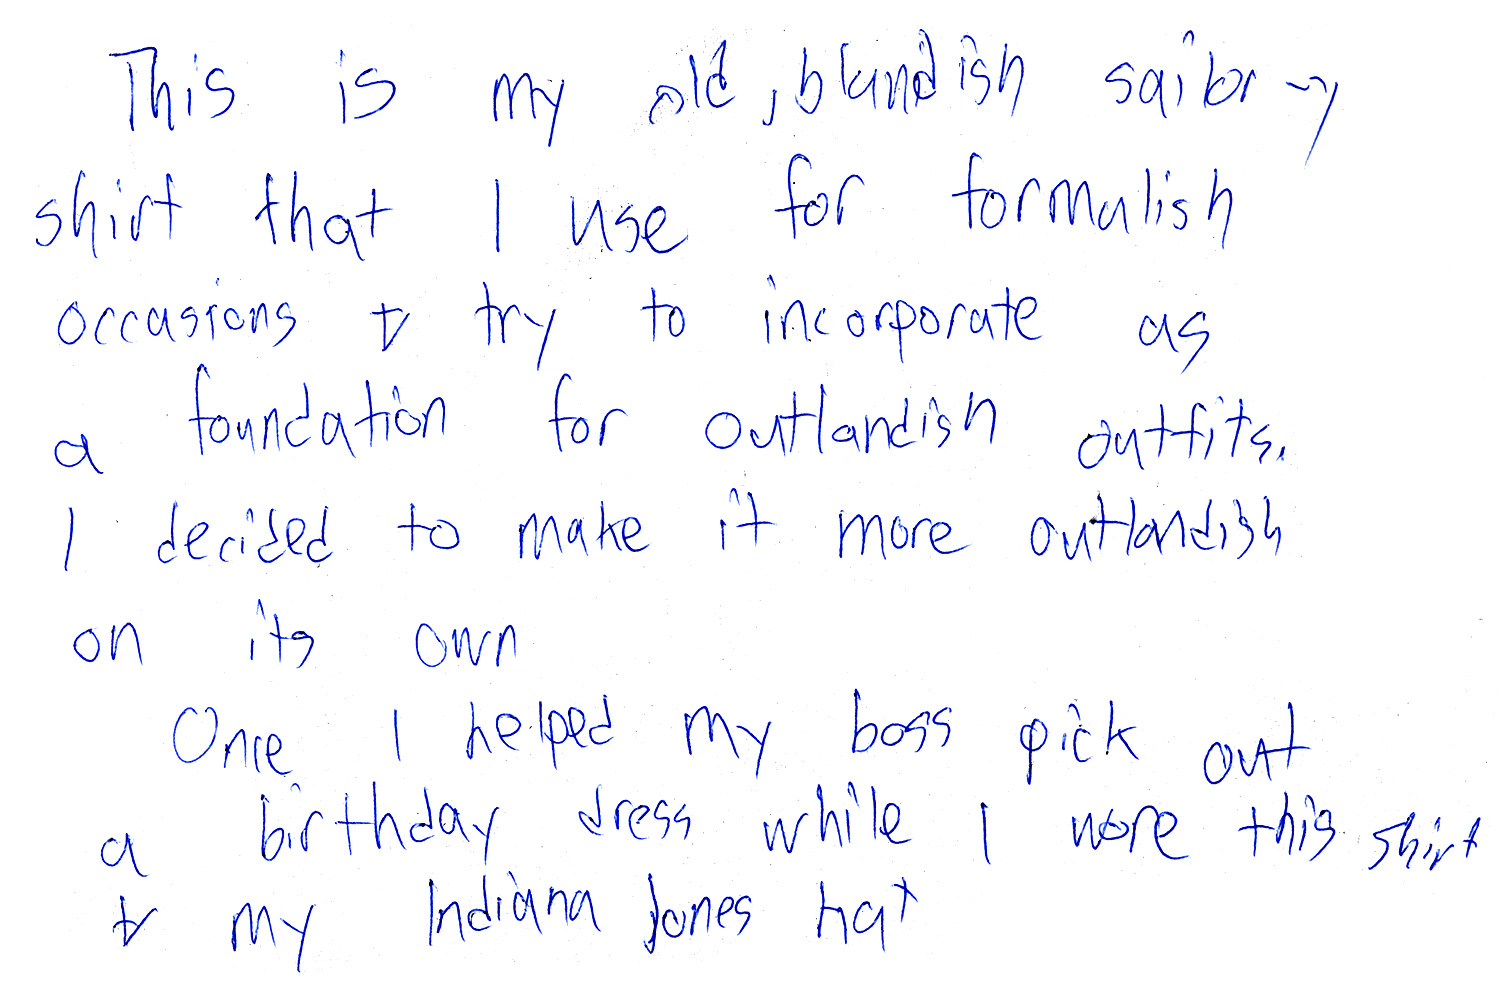 This is my old, blandish sailor-y
shirt that I use for formalish
occasions & try to incorporate as
a foundation for outlandish outfits.
I decided to make it more outlandish
on its own
Once I helped my boss pick out
a birthday dress while I wore this shirt
& my Indiana Jones hat